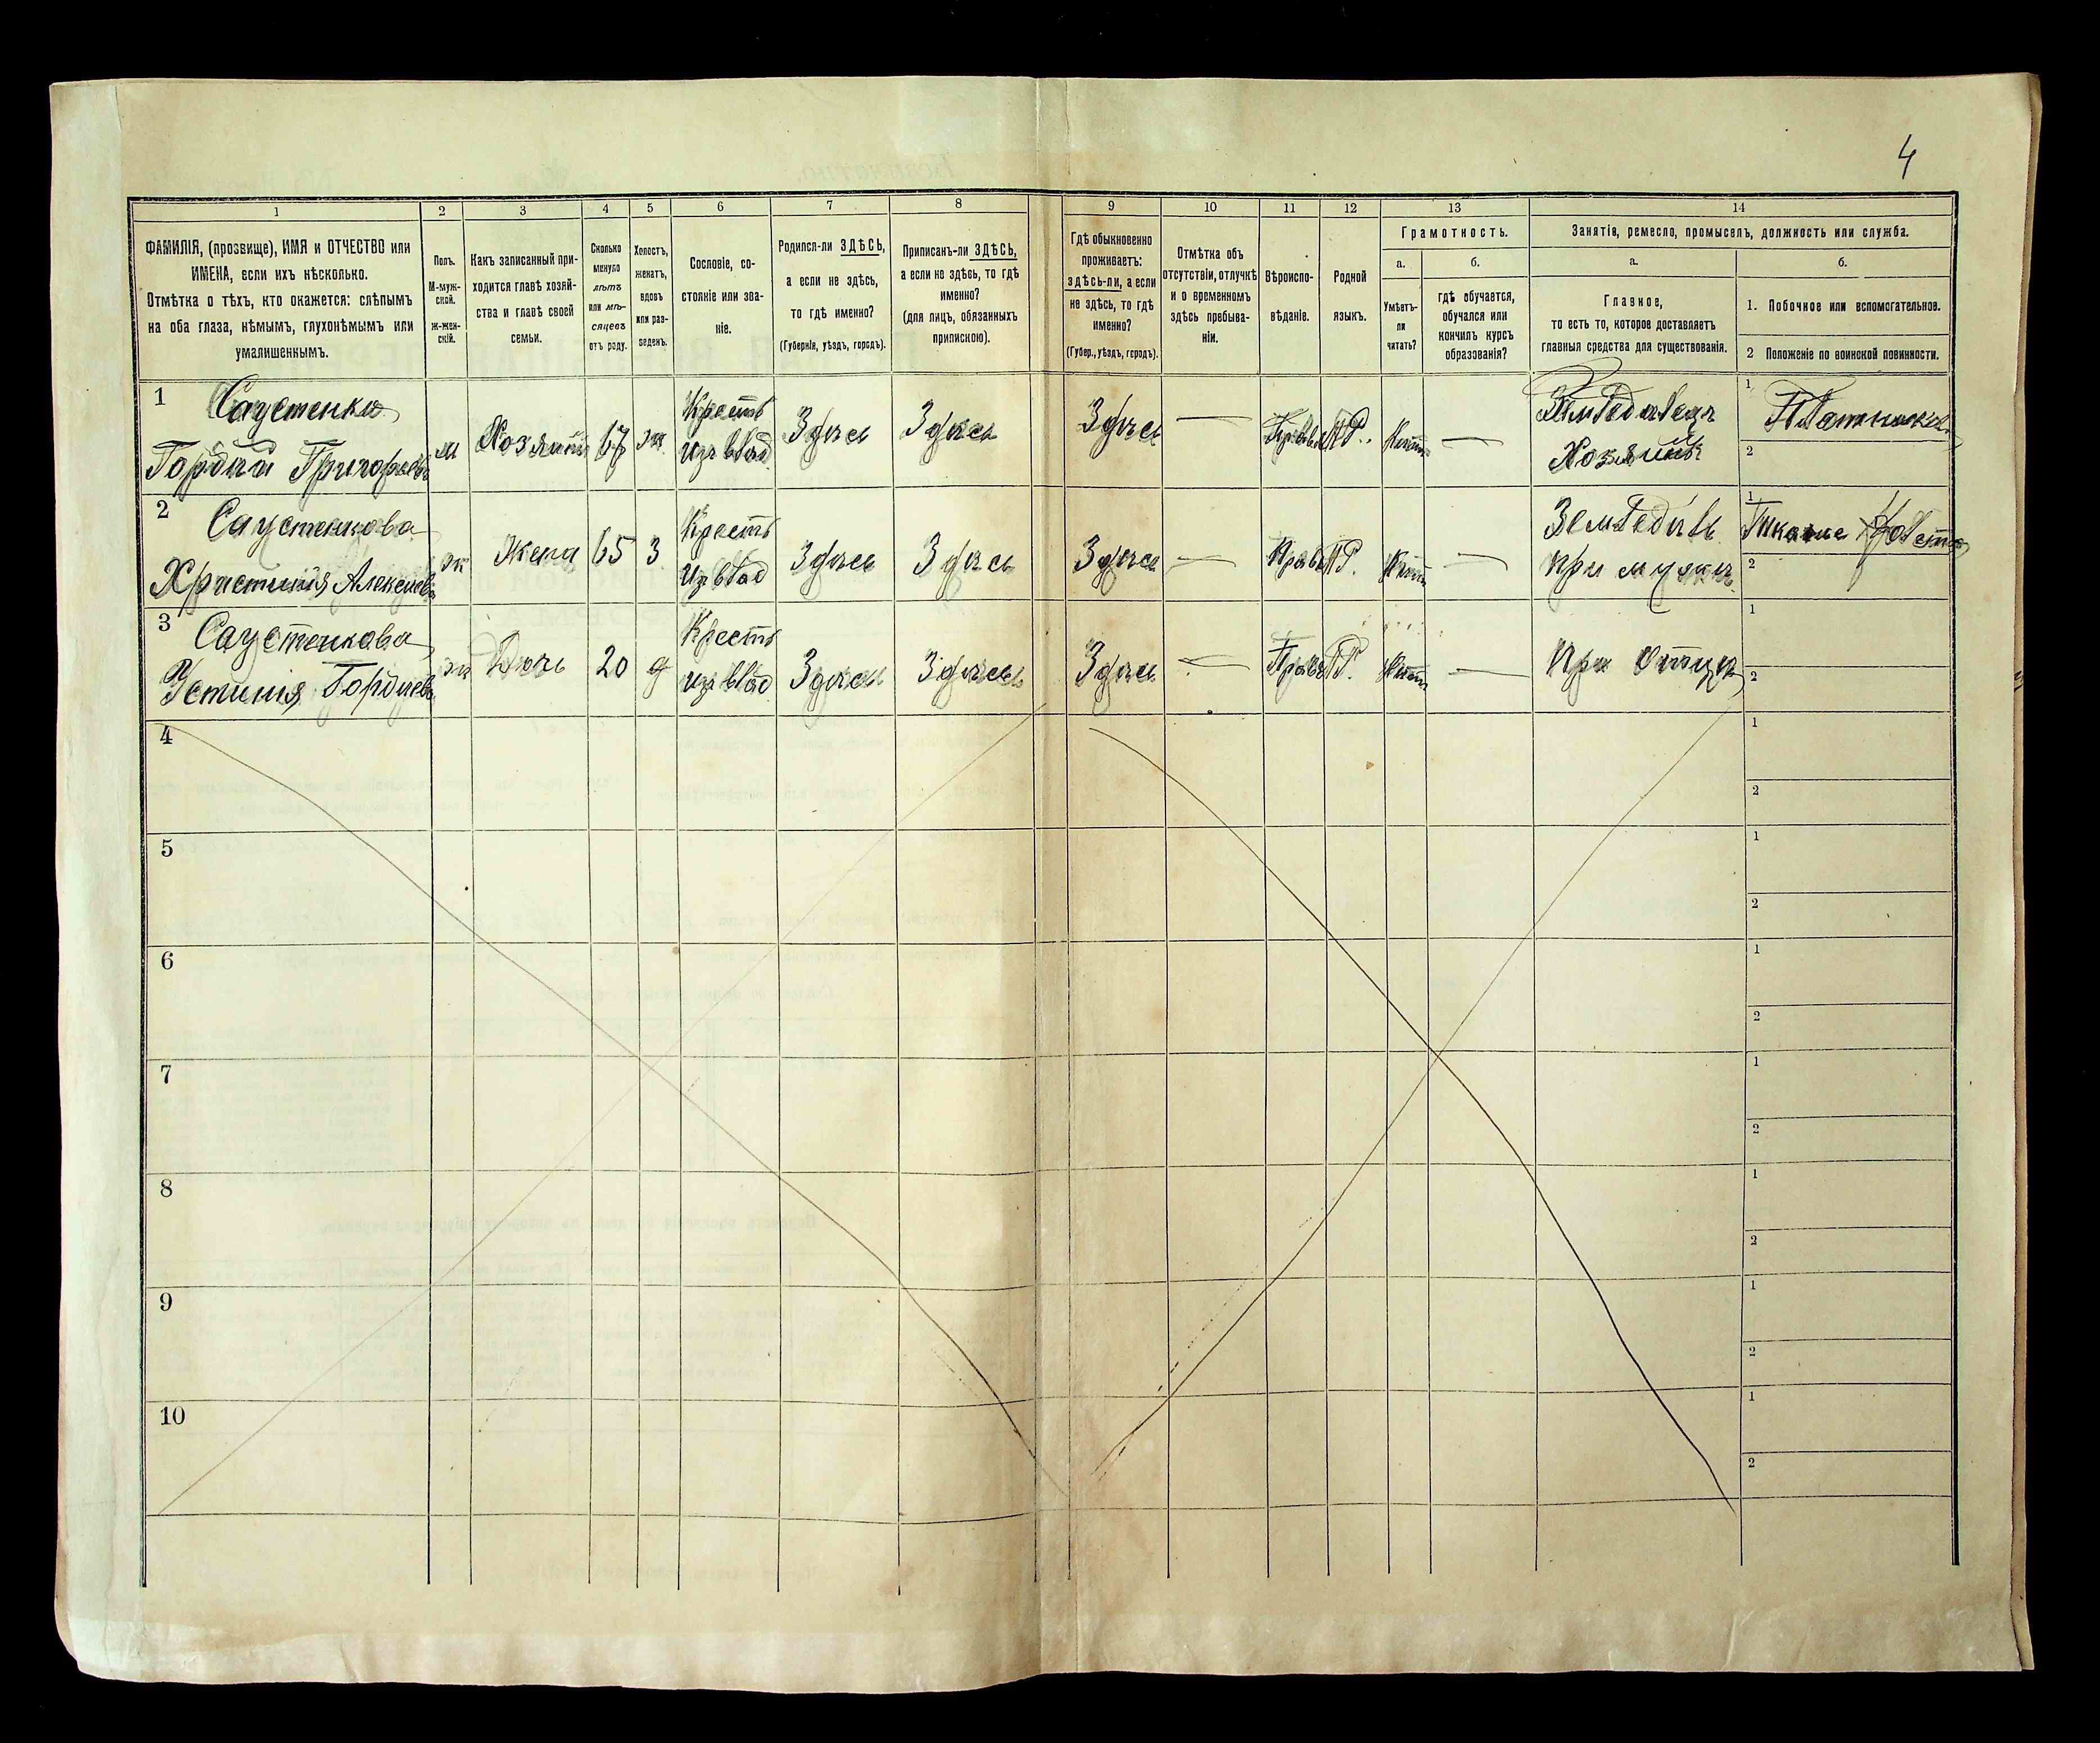 4
1 2 3 4 5 6 7 8 9 10 11 12 13 14
ФАМИЛІЯ, (прозвище), ИМЯ и ОТЧЕСТВО или
ИМЕНА, если ихъ нѣсколько.
Отмѣтка о тѣхъ, кто окажется: слѣпымъ
на оба глаза, нѣмымъ, глухонѣмымъ или
умалишеннымъ.
Полъ.
М-муж-
ской.
ж-жен-
скій.
Какъ записанный при-
ходится главѣ хозяй-
ства и главѣ своей
семьи.
Сколько
минуло
лѣтъ
или мѣ-
сяцевъ
отъ роду.
Холостъ,
женатъ,
вдовъ
или раз-
веденъ.
Сословіе, со-
стояніе или зва-
ніе.
Родился-ли ЗДѢСЬ,
а если не здѣсь,
то гдѣ именно?
(Губернія, уѣздъ, городъ).
Приписанъ-ли ЗДѢСЬ,
а если не здѣсь, то гдѣ
именно?
(для лицъ, обязанныхъ
припискою).
Гдѣ обыкновенно
проживаетъ:
здѣсь-ли, а если
не здѣсь, то гдѣ
именно?
(Губер., уѣздъ, городъ).
Отмѣтка объ
отсутствіи, отлучкѣ
и о временномъ
здѣсь пребыва-
ніи.
Вѣроиспо-
вѣданіе.
Родной
языкъ.
Грамотность.
а.
Умѣетъ-
ли
читать?
б.
гдѣ обучается,
обучался или
кончилъ курсъ
образованія?
Занятія, ремесло, промыселъ, должность или служба.
а.
Главное,
то есть то, которое доставляетъ
главныя средства для существованія.
б.
1. Побочное или вспомогательное.
2 Положеніе по воинской повинности.
1 Саустенко
Гордѣй Григорьевъ
м
Хозяинъ
67
ж
Крестъ
изъ влад
Здѣсь
Здѣсь
Здѣсь
—
Правос
Нѣтъ
—
Земледѣлецъ
Хозяинъ
1 Плотникъ
2
2 Саустенкова
Христинія Алексѣева
ж
Жена
65
З
Крестъ
изъ влад
Здѣсь
Здѣсь
Здѣсь
—
Прав
Нѣтъ
—
Земледѣль
при мужѣ
1 Тканіе холста
2
3 Саустенкова
Устинія Гордѣева
ж
Дочь
20
д
Крестъ
изъ влад
Здѣсь
Здѣсь
Здѣсь
—
Прав
Нѣтъ
—
при отцѣ
1
2
4
1
2
5
1
2
6
1
2
7
1
2
8
1
2
9
1
2
10
1
2